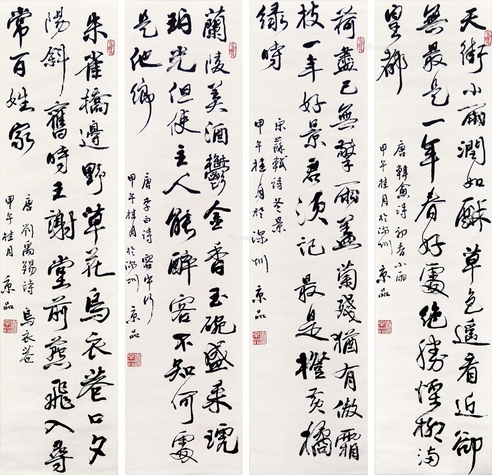 天街小雨潤如酥草色遥看近卻
無最是一年春好處絶勝煙柳滿
皇都
唐韓愈詩初春小雨
甲午桂月於深圳 京品
荷盡已無擎雨蓋菊殘猶有傲霜
枝一年好景君須記最是橙黄橘
緑時
宋蘇軾詩冬景
甲午桂月於深圳 京品
蘭陵美酒鬱金香玉碗盛来琥
珀光但使主人能醉客不知何處
是他鄉
唐李白詩客中行
甲午桂月於深圳 京品
朱雀橋邊野草花烏衣巷口夕
陽斜舊時王謝堂前燕飛入尋
常百姓家
唐劉禹錫詩烏衣巷
甲午桂月 京品